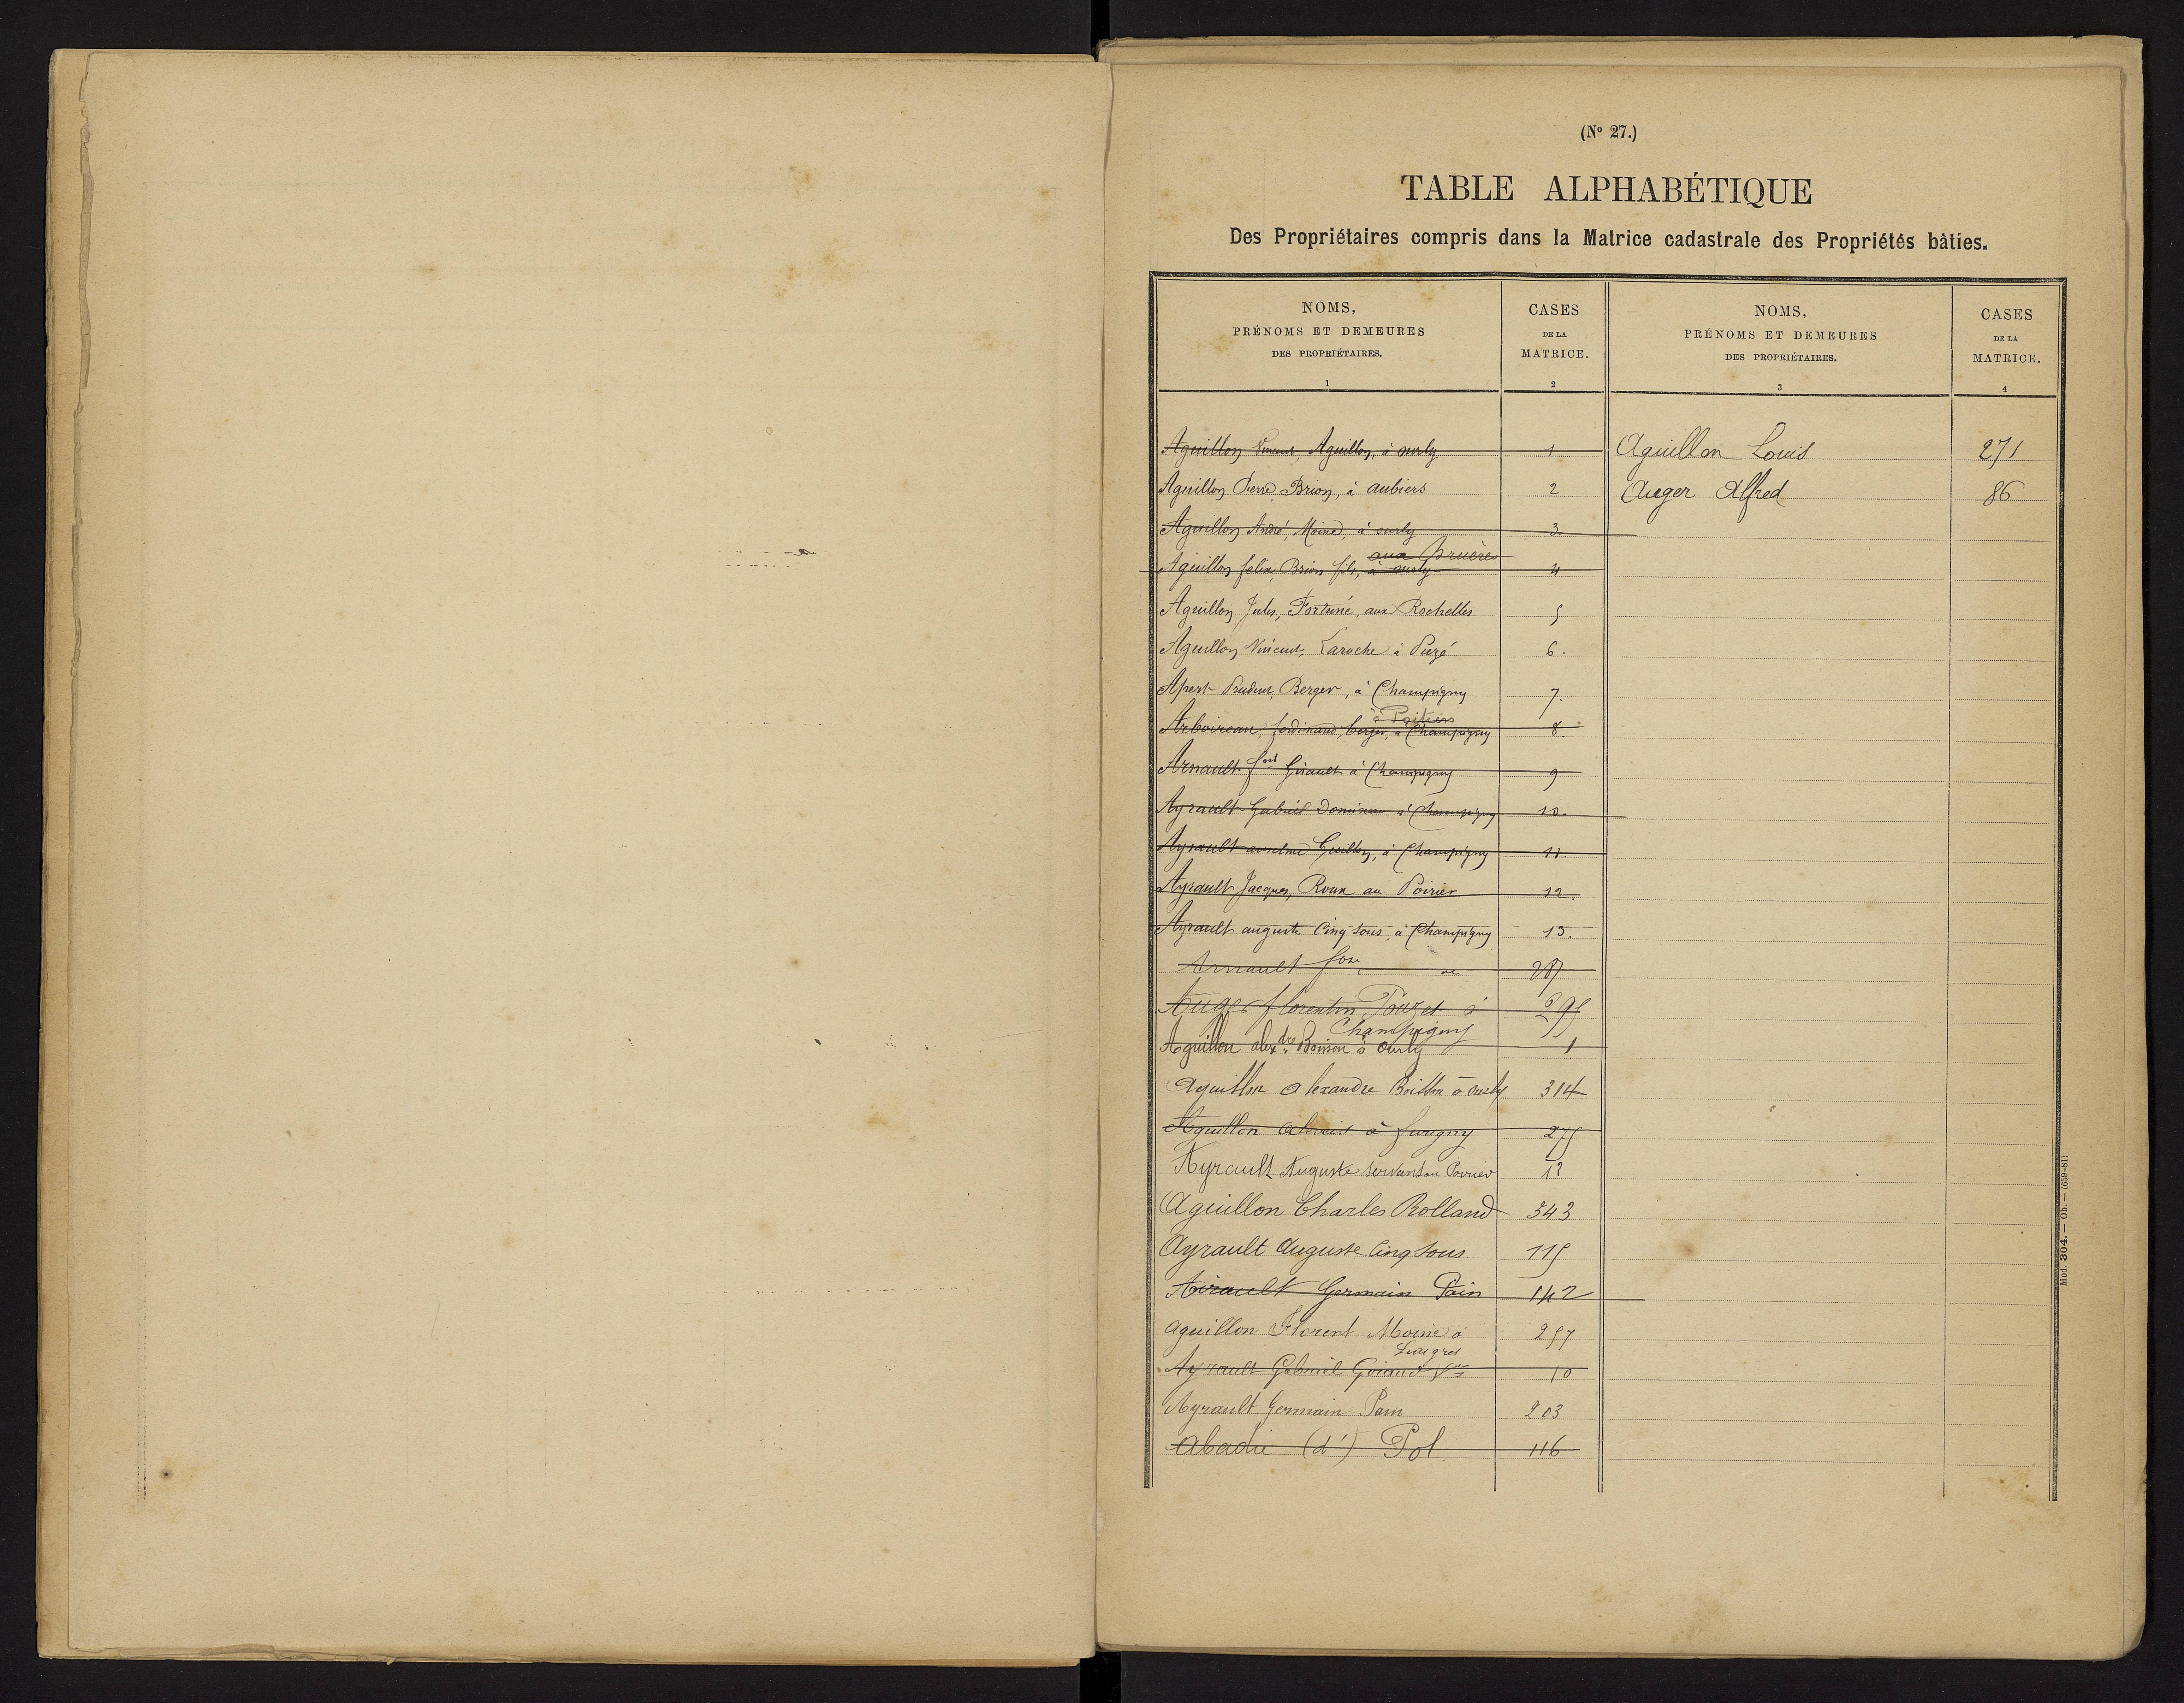 (Nº 27.)
TABLE ALPHABÉTIQUE
Des Propriétaires compris dans la Matrice cadastrale des Propriétés bâties.
NOMS,
PRÉNOMS ET DEMEURES
DES PROPRIÉTAIRES.
1
CASES
DE LA
MATRICE.
2
NOMS,
PRÉNOMS ET DEMEURES
DES PROPRIÉTAIRES.
3
CASES
DE LA
MATRICE.
4
Aguillon Vincent, Aguillon, à ourly 1
Aguillon Pierre, Brion, à aubiers 2
Aguillon André, Moine, à ourly 3
aux Bruères
Aguillon felix, Brion fils, à ourly 4
Aguillon Jules, Fortuné, aux Rochelles 5
Aguillon Vincent, Laroche à Puzé 6.
Apert Prudent, Berger, à Champigny 7.
à Poitiers
ferdinand, berger, à Champigny 8.
Arnault à Champigny 9
Ayrault Gabriel à Champigny 10.
Ayrault anselme Guillon, à Champigny 11.
Ayrault Jacques, Roux au Poirier 12.
Ayrault auguste Cinq sous, à Champigny 13.
Arnault 287
Auger florentin Pouzet à
Champigny
Aguillon alexdre à Ourly 1
Aguillon alexandre à ourly 314
Aguillon à furigny 275
Ayrault Auguste servant au Poirier 12
Aguillon Charles Rolland 343
Ayrault Auguste Cinq sous 115
Airault Germain Pain 142
Aguillon Florent Moine à 257
Ayrault Gabriel 10
Ayrault Germain Pain 203
Abadie (d') Pol 116
Aguillon Louis 271
Auger Alfred 86
Mod. 304. — Ob. — (659-81)